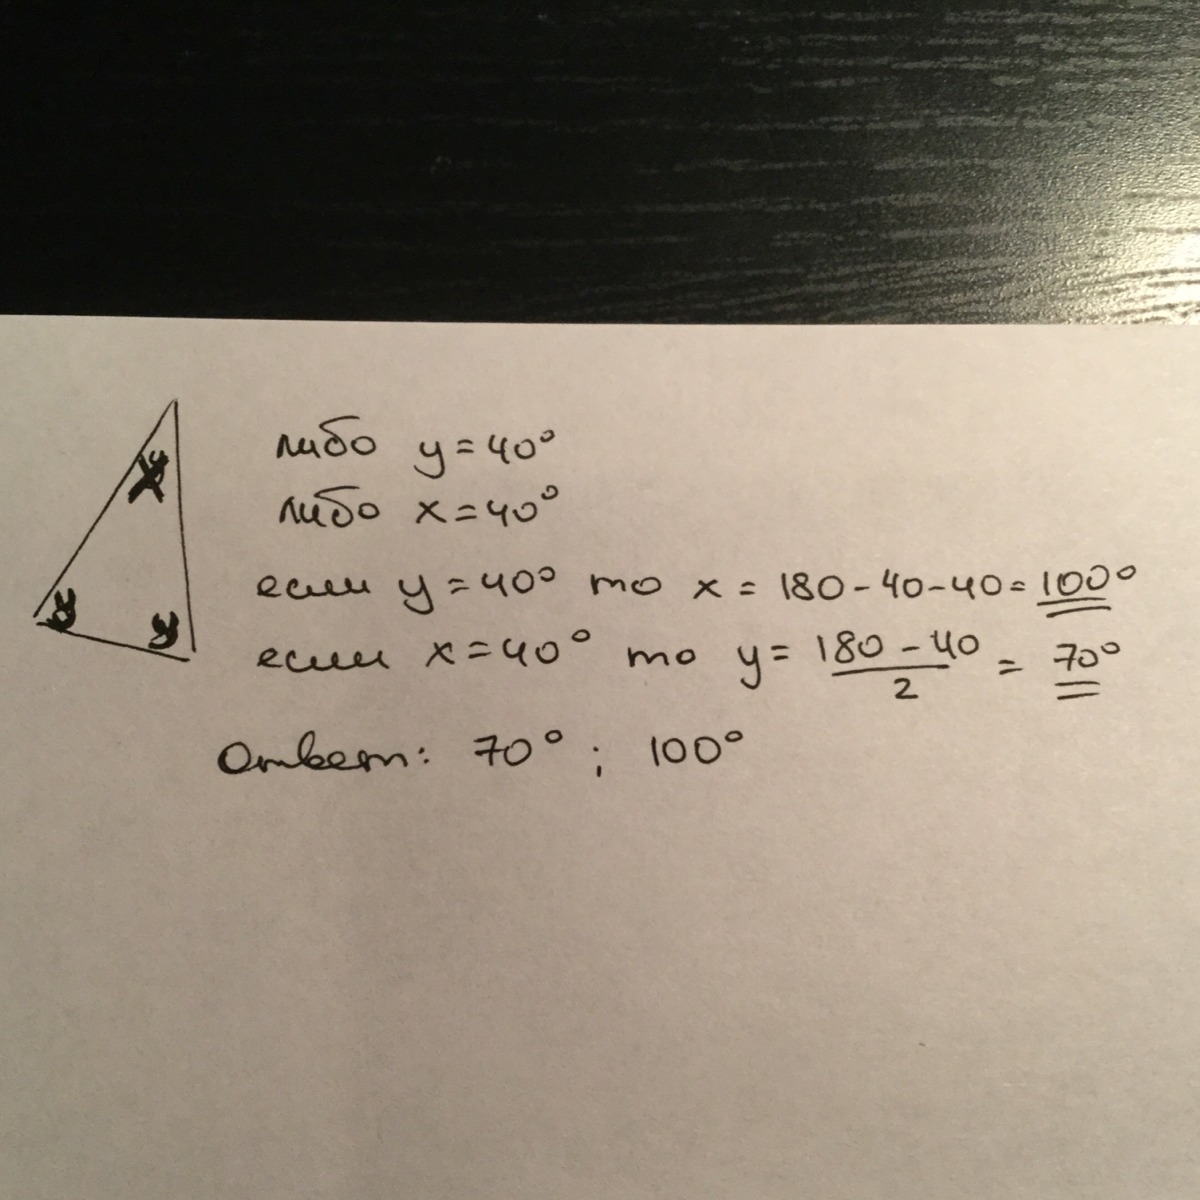 x
y y
либо y = 40°
либо x = 40°
если y = 40° то x = 180 - 40 - 40 = 100°
если x = 40° то y = (180 - 40)/2 = 70°
Ответ: 70° ; 100°